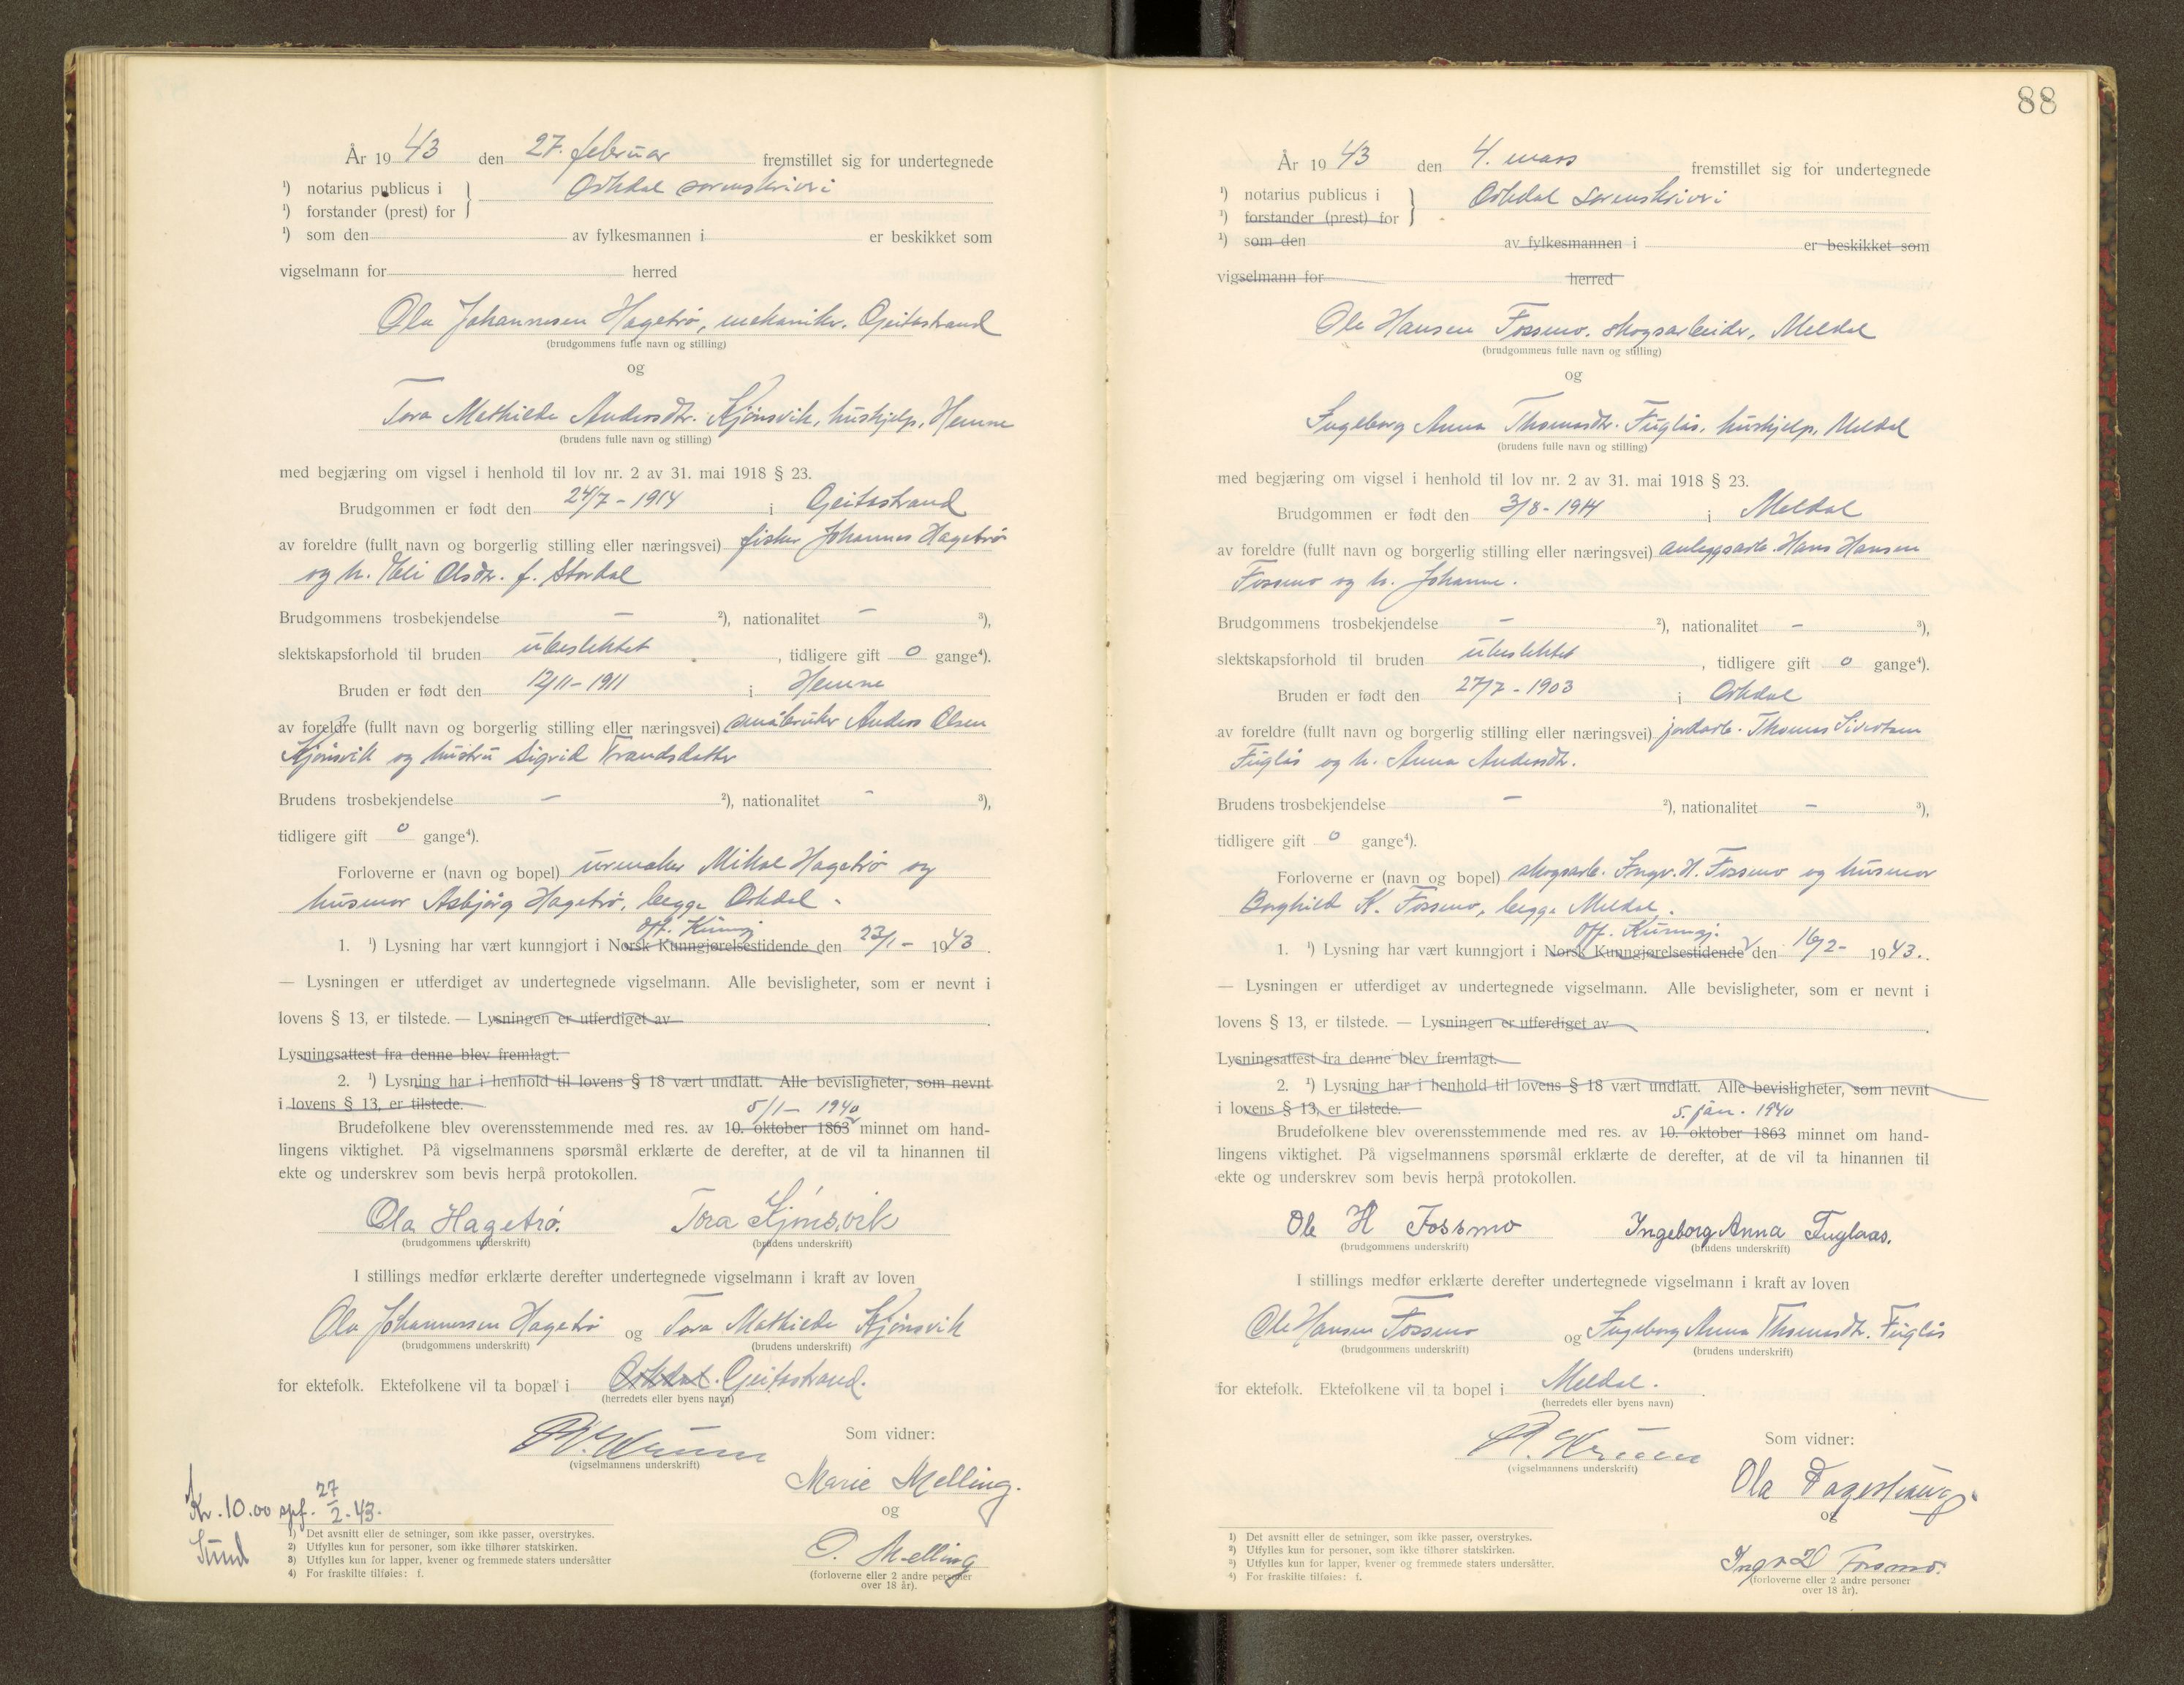 År 1943 den 27. februar fremstillet sig for undertegnede
¹) notarius publicus i Orkdal sorenskriveri
¹) forstander (prest) for
¹) som den av fylkesmannen i er beskikket som
vigselmann for herred
Ola Johannesen Hagetrø, mekaniker, Geitastrand
(brudgommens fulle navn og stilling)
og
Tora Mathilde Andersdtr. Kjønsvik, hushjelp, Hemne
(brudens fulle navn og stilling)
med begjæring om vigsel i henhold til lov nr. 2 av 31. mai 1918 § 23.
Brudgommen er født den 24/7 - 1914 i Geitastrand
av foreldre (fullt navn og borgerlig stilling eller næringsvei) fisker Johannes Hagetrø
og h. Eli Olsdtr. f. Stordal
Brudgommens trosbekjendelse - ²), nationalitet - ³),
slektskapsforhold til bruden ubeslektet , tidligere gift 0 gange⁴).
Bruden er født den 12/11 - 1911 i Hemne
av foreldre (fullt navn og borgerlig stilling eller næringsvei) småbruker Anders Olsen
Kjønsvik og hustru Sigrid Trondsdatter
Brudens trosbekjendelse - ²), nationalitet - ³),
tidligere gift 0 gange⁴).
Forloverne er (navn og bopel) urmaker Mikal Hagetrø og
husmor Asbjørg Hagetrø, begge Orkdal -
off. Kunngj
1. ¹) Lysning har vært kunngjort i Norsk Kunngjørelsestidende den 23/1 - 1943.
— Lysningen er utferdiget av undertegnede vigselmann. Alle bevisligheter, som er nevnt i
lovens § 13, er tilstede. — Lysningen er utferdiget av
Lysningsattest fra denne blev fremlagt.
2. ¹) Lysning har i henhold til lovens § 18 vært undlatt. Alle bevisligheter, som nevnt
i lovens § 13, er tilstede.
5/1 - 1940
Brudefolkene blev overensstemmende med res. av 10. oktober 1863 minnet om hand-
lingens viktighet. På vigselmannens spørsmål erklærte de derefter, at de vil ta hinannen til
ekte og underskrev som bevis herpå protokollen.
Ola Hagetrø. Tora Kjønsvik
(brudgommens underskrift) (brudens underskrift)
I stillings medfør erklærte derefter undertegnede vigselmann i kraft av loven
Ola Johannessen Hagetrø og Tora Mathilde Kjønsvik
(brudgommens underskrift) (brudens underskrift)
for ektefolk. Ektefolkene vil ta bopæl i Orkdal. Geitastrand.
(herredets eller byens navn)
(vigselmannens underskrift)
Som vidner:
Marie Melling.
og
O. Melling
(forloverne eller 2 andre personer
over 18 år).
Kr. 10.00 spf. 27/2-43.
Sund
1) Det avsnitt eller de setninger, som ikke passer, overstrykes.
2) Utfylles kun for personer, som ikke tilhører statskirken.
3) Utfylles kun for lapper, kvener og fremmede staters undersåtter
4) For fraskilte tilføies: f.
88
År 1943 den 4. mars fremstillet sig for undertegnede
¹) notarius publicus i Orkdal sorenskriveri
¹) forstander (prest) for
¹) som den av fylkesmannen i er beskikket som
vigselmann for herred
Ole Hansen Fossmo, skogsarbeider, Meldal
(brudgommens fulle navn og stilling)
og
Ingeborg Anna Thomasdtr. Fuglås, hushjelp, Meldal
(brudens fulle navn og stilling)
med begjæring om vigsel i henhold til lov nr. 2 av 31. mai 1918 § 23.
Brudgommen er født den 3/8 - 1914 i Meldal
av foreldre (fullt navn og borgerlig stilling eller næringsvei) anleggsarb. Hans Hansen
Fossmo og h. Johanne.
Brudgommens trosbekjendelse - ²), nationalitet - ³),
slektskapsforhold til bruden ubeslektet , tidligere gift 0 gange⁴).
Bruden er født den 27/7 - 1903 i Orkdal
av foreldre (fullt navn og borgerlig stilling eller næringsvei) jordarb. Thomas Sivertsen
Fuglås og h. Anna Andersdtr.
Brudens trosbekjendelse - ²), nationalitet - ³),
tidligere gift 0 gange⁴).
Forloverne er (navn og bopel) skogsarb. Ingv. H. Fossmo og husmor
Borghild K. Fossmo, begge Meldal.
Off. Kunngj.
1. ¹) Lysning har vært kunngjort i Norsk Kunngjørelsestidende den 16/2 - 1943.
— Lysningen er utferdiget av undertegnede vigselmann. Alle bevisligheter, som er nevnt i
lovens § 13, er tilstede. — Lysningen er utferdiget av
Lysningsattest fra denne blev fremlagt.
2. ¹) Lysning har i henhold til lovens § 18 vært undlatt. Alle bevisligheter, som nevnt
i lovens § 13, er tilstede.
5. jan. 1940
Brudefolkene blev overensstemmende med res. av 10. oktober 1863 minnet om hand-
lingens viktighet. På vigselmannens spørsmål erklærte de derefter, at de vil ta hinannen til
ekte og underskrev som bevis herpå protokollen.
Ole H Fossmo Ingeborg Anna Fuglaas.
(brudgommens underskrift) (brudens underskrift)
I stillings medfør erklærte derefter undertegnede vigselmann i kraft av loven
Ole Hansen Fossmo og Ingeborg Anna Thomasdtr. Fuglås
(brudgommens underskrift) (brudens underskrift)
for ektefolk. Ektefolkene vil ta bopel i Meldal.
(herredets eller byens navn)
(vigselmannens underskrift)
Som vidner:
Ola Fagerhaug.
og
Ingv H Fossmo.
(forloverne eller 2 andre personer
over 18 år).
1) Det avsnitt eller de setninger, som ikke passer, overstrykes.
2) Utfylles kun for personer, som ikke tilhører statskirken.
3) Utfylles kun for lapper, kvener og fremmede staters undersåtter.
4) For fraskilte tilføies: f.